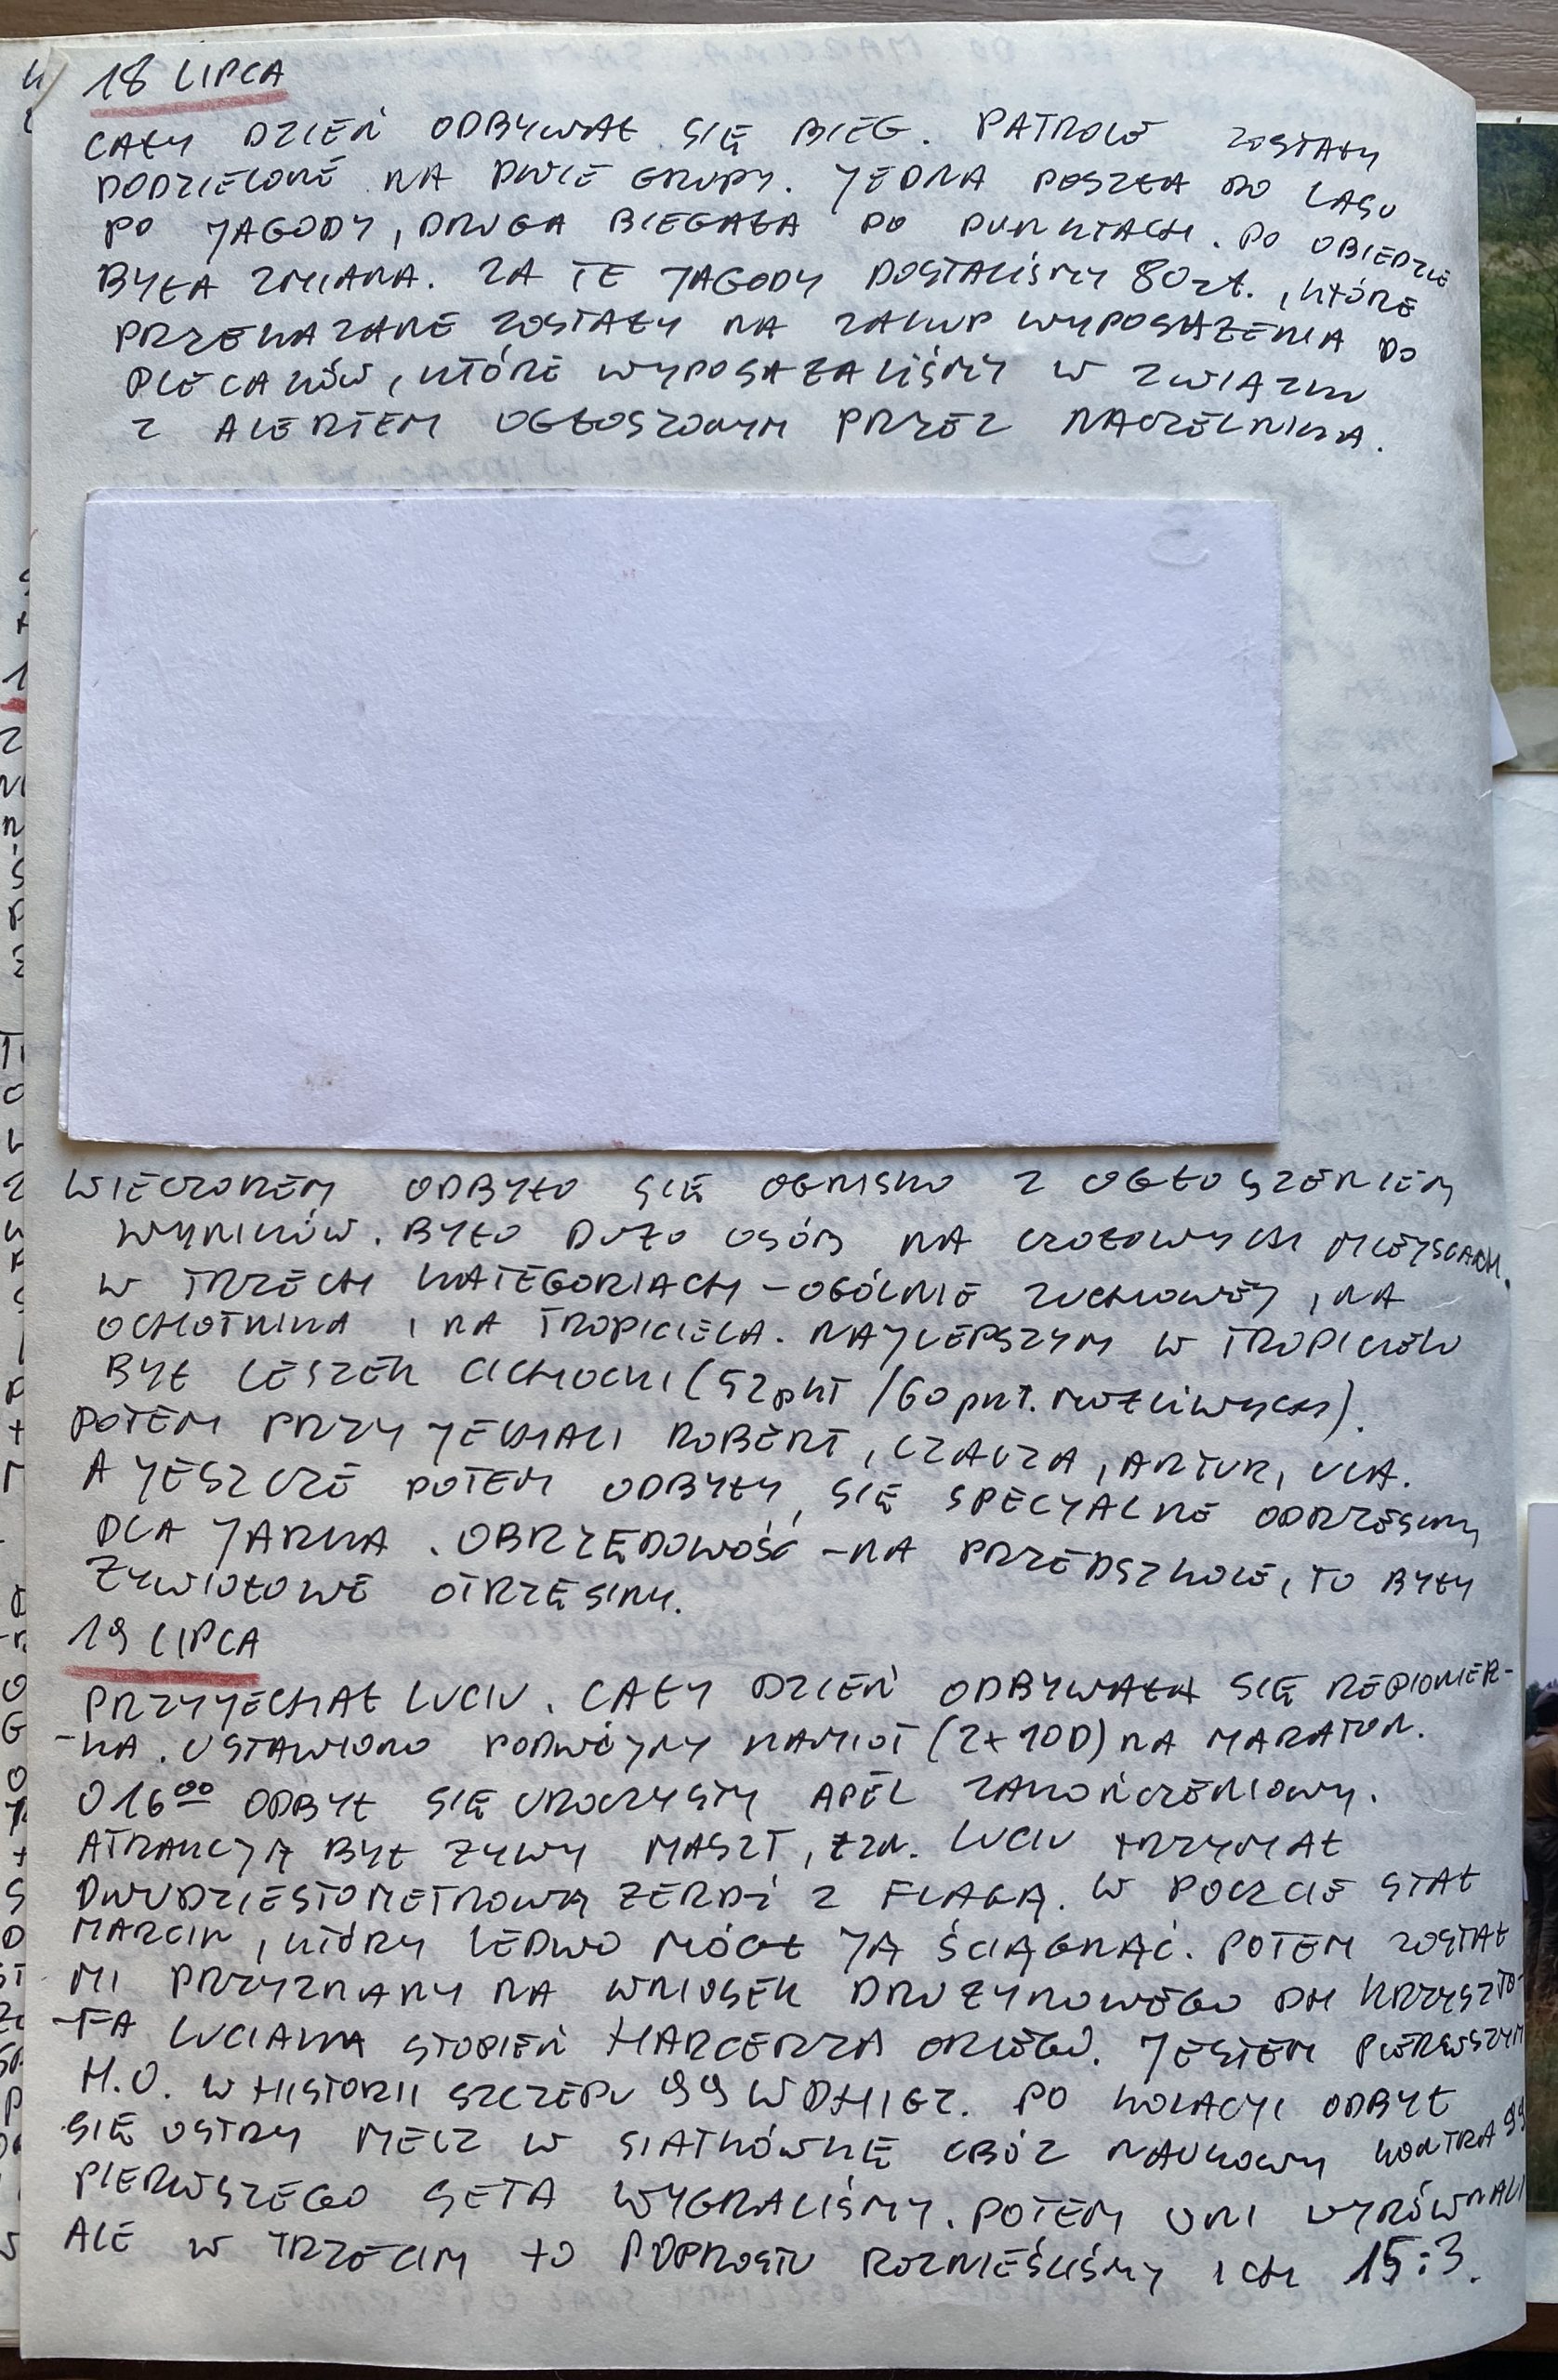 18 LIPCA
CAŁY DZIEŃ ODBYWAŁ SIĘ BIEG. PATROLE ZOSTAŁY
PODZIELONE NA DWIE GRUPY. JEDNA POSZŁA DO LASU
PO JAGODY, DRUGA BIEGAŁA PO PUNKTACH. PO OBIEDZIE
BYŁA ZMIANA. ZA TE JAGODY DOSTALIŚMY 80 zł., KTÓRE
PRZEKAZANE ZOSTAŁY NA ZAKUP WYPOSAŻENIA DO
PLECAKÓW, KTÓRE WYPOSAŻALIŚMY W ZWIĄZKU
Z ALERTEM OGŁOSZONYM PRZEZ NACZELNIKA.
WIECZOREM ODBYŁO SIĘ OGNISKO Z OGŁOSZENIEM
WYNIKÓW. BYŁO DUŻO OSÓB NA CZOŁOWYCH MIEJSCACH.
W TRZECH KATEGORIACH - OGÓLNIE ZUCHOWEJ, NA
OCHOTNIKA I NA TROPICIELA. NAJLEPSZYM W TROPICIELU
BYŁ LESZEK CICHOCKI (52 pkt / 60 pkt. MOŻLIWYCH).
POTEM PRZYJECHALI ROBERT, CZACZA, ARTUR, ULA.
A JESZCZE POTEM ODBYŁY SIĘ SPECJALNE ODRZĘSINY
DLA JARKA. OBRZĘDOWOŚĆ - NA PRZEDSZKOLE, TO BYŁY
ŻYWIOŁOWE OTRZĘSINY.
19 LIPCA
PRZYJECHAŁ LUCIU. CAŁY DZIEŃ ODBYWAŁA SIĘ REPIONIER-
-KA. USTAWIONO PODWÓJNY NAMIOT (2x10D) NA MARATON.
O 16⁰⁰ ODBYŁ SIĘ UROCZYSTY APEL ZAKOŃCZENIOWY.
ATRAKCJĄ BYŁ ŻYWY MASZT, tzn. LUCIU TRZYMAŁ
DWUDZIESTOMETROWĄ ŻERDŹ Z FLAGĄ. W POCZCIE STAŁ
MARCIN, KTÓRY LEDWO MÓGŁ JĄ ŚCIĄGNĄĆ. POTEM ZOSTAŁ
MI PRZYZNANY NA WNIOSEK DRUŻYNOWEGO DH KRZYSZTO-
-FA LUCIAKA STOPIEŃ HARCERZA ORLEGO. JESTEM PIERWSZYM
H.O. W HISTORII SZCZEPU 99 WDHIGZ. PO KOLACJI ODBYŁ
SIĘ OSTRY MECZ W SIATKÓWKĘ OBÓZ NAUKOWY KONTRA 99
PIERWSZEGO SETA WYGRALIŚMY. POTEM ONI WYRÓWNALI
ALE W TRZECIM TO POPROSTU ROZNIEŚLIŚMY ICH 15:3.